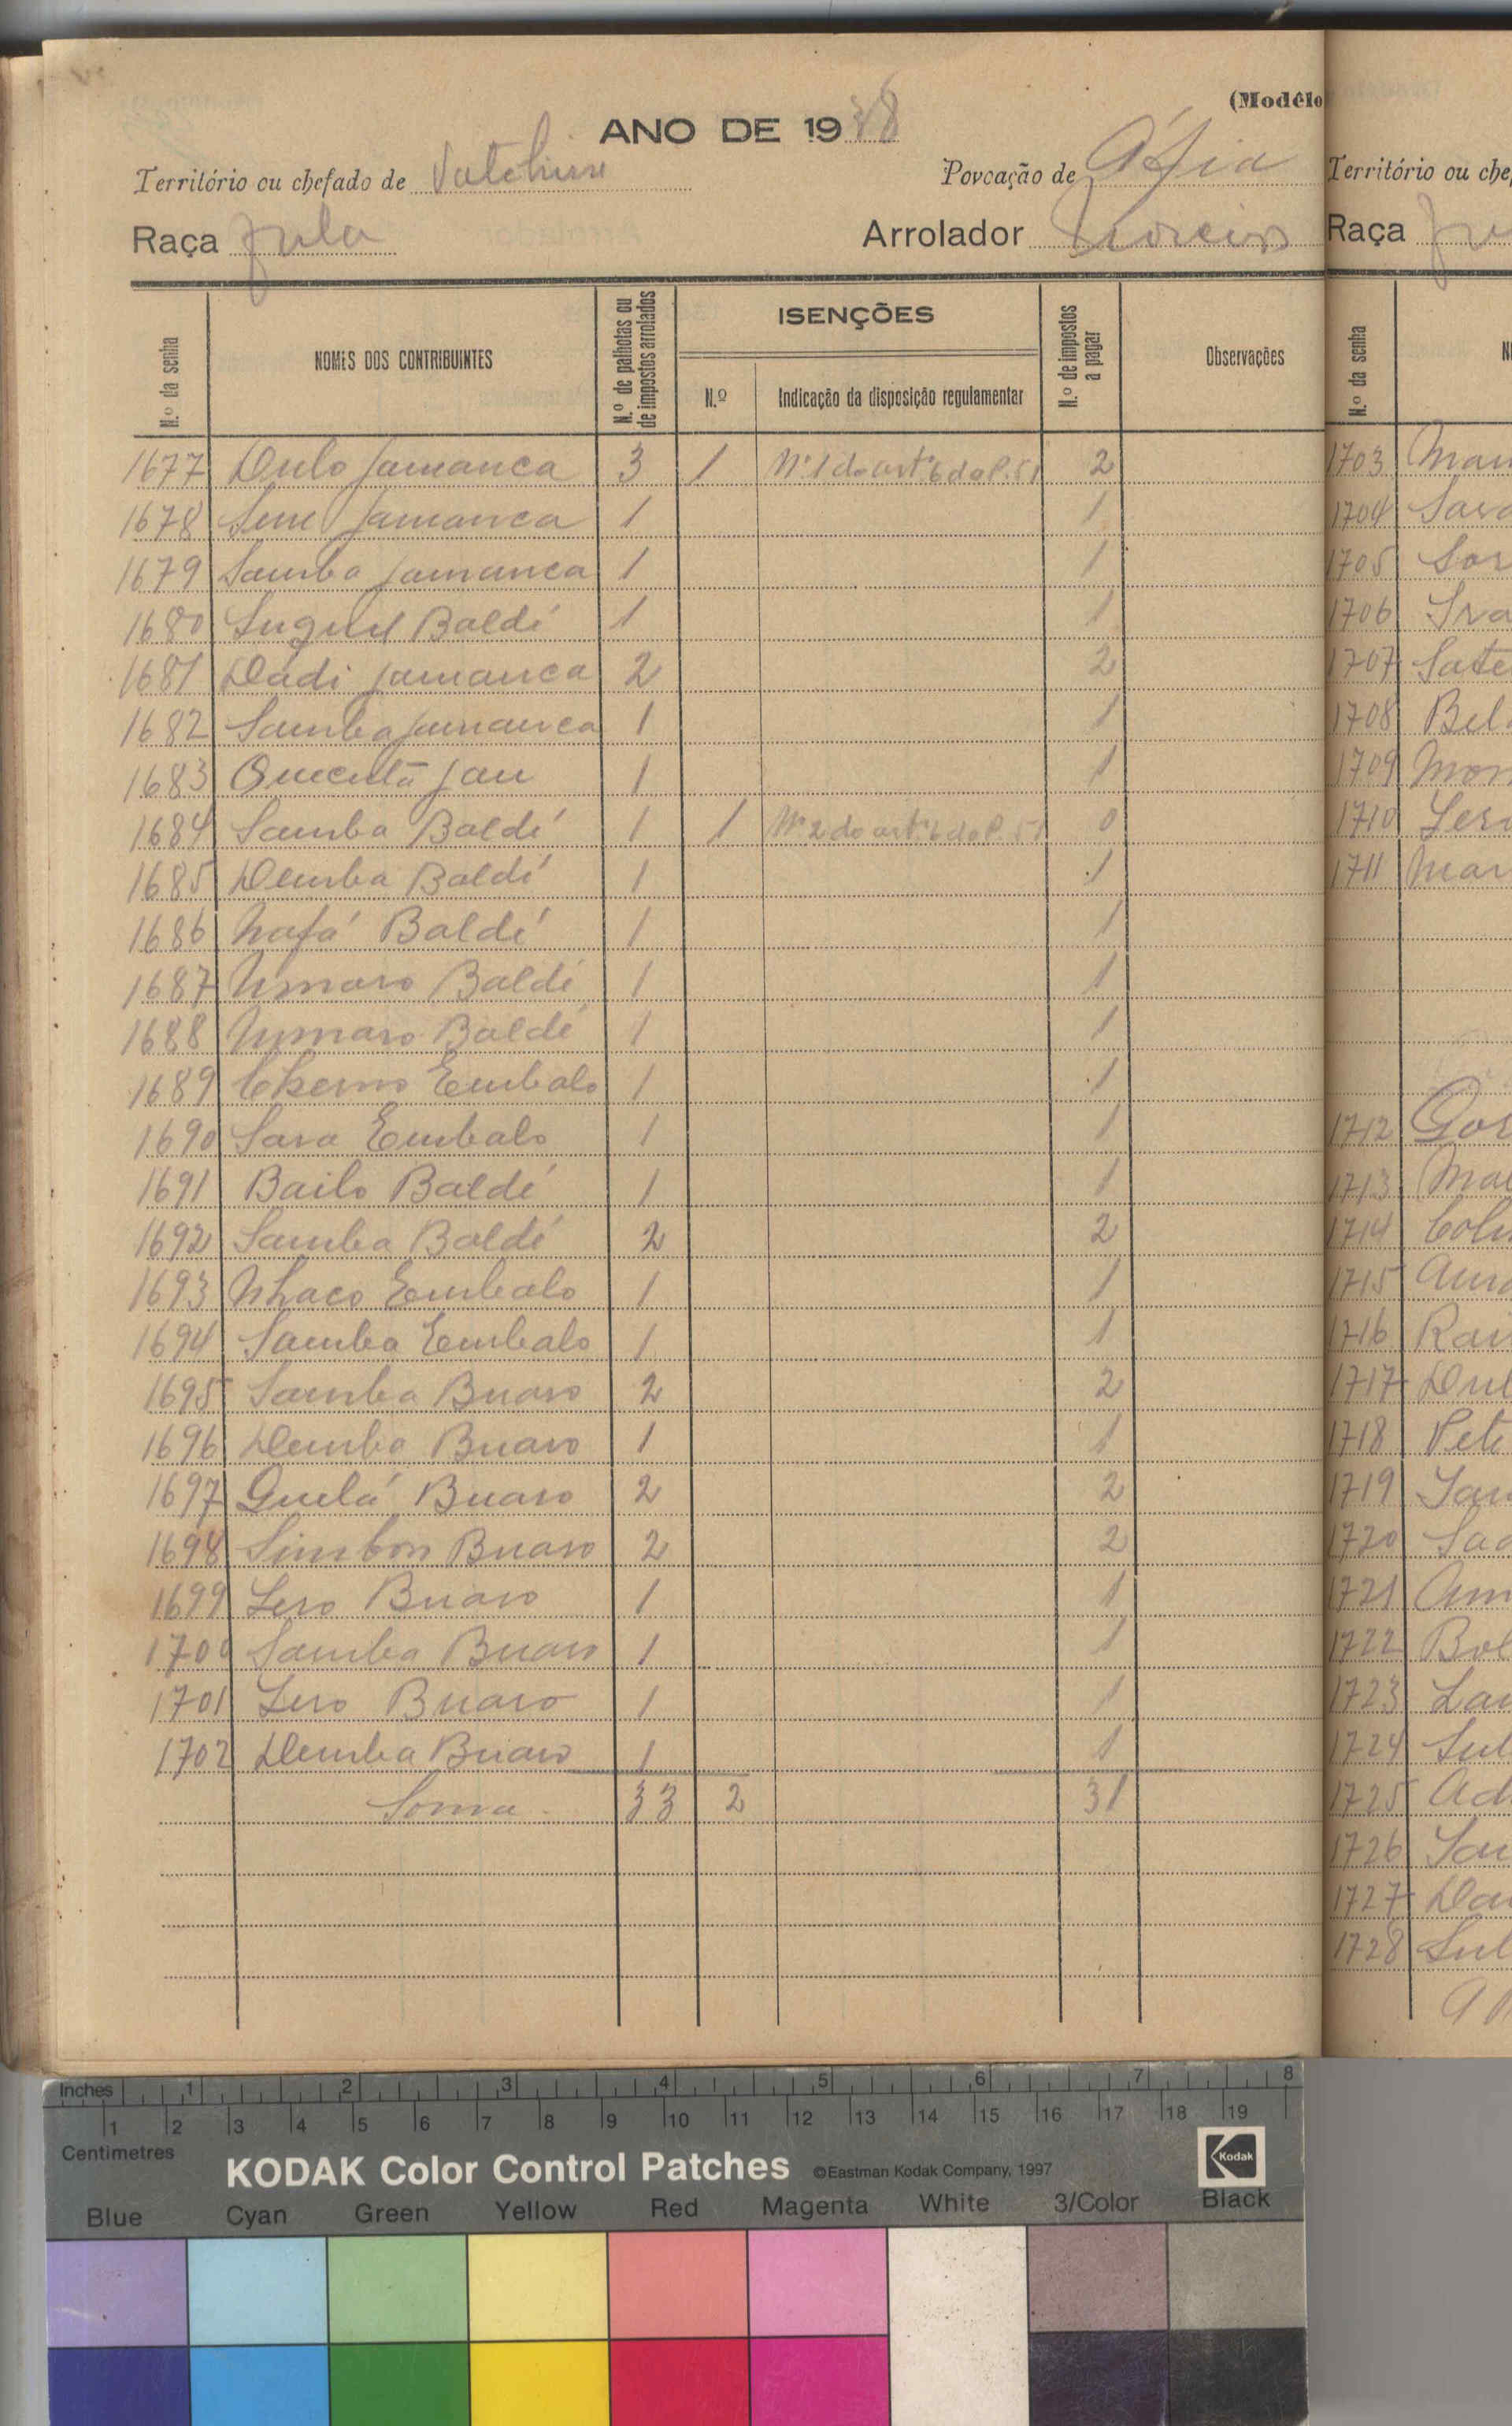 (Modêlo
ANO DE 1938
Território ou chefado de
Povoação de
Raça Fula
Arrolador
N.º da senha
NOMES DOS CONTRIBUINTES
N.º de palhotas ou de impostos arrolados
ISENÇÕES
N.º
Indicação da disposição regulamentar
N.º de impostos a pagar
Observações
1677 Dulo Jamanca 3 1 Nº 1 do artº 6 do P. 51 2
1678 Sene Jamanca 1 1
1679 Samba Jamanca 1 1
1680 Baldé 1 1
1681 Dadi Jamanca 2 2
1682 Samba Jamanca 1 1
1683 Jau 1 1
1684 Samba Baldé 1 1 Nº 2 do artº 6 do P. 51 0
1685 Demba Baldé 1 1
1686 Baldé 1 1
1687 Umaro Baldé 1 1
1688 Umaro Baldé 1 1
1689 Cherno Embalo 1 1
1690 Sara Embalo 1 1
1691 Bailo Baldé 1 1
1692 Samba Baldé 2 2
1693 Nhaco Embalo 1 1
1694 Samba Embalo 1 1
1695 Samba Buaro 2 2
1696 Demba Buaro 1 1
1697 Guelá Buaro 2 2
1698 Simbon Buaro 2 2
1699 Lero Buaro 1 1
1700 Samba Buaro 1 1
1701 Lero Buaro 1 1
1702 Demba Buaro 1 1
Soma 33 2 31
Território ou che
Raça
N.º da senha
1703
1704
1705
1706
1707
1708
1709
1710
1711
1712
1713
1714
1715
1716
1717
1718
1719
1720
1721
1722
1723
1724
1725
1726
1727
1728
Inches 1 2 3 4 5 6 7 8
1 2 3 4 5 6 7 8 9 10 11 12 13 14 15 16 17 18 19
Centimetres
KODAK Color Control Patches ©Eastman Kodak Company, 1997
Kodak
Blue Cyan Green Yellow Red Magenta White 3/Color Black